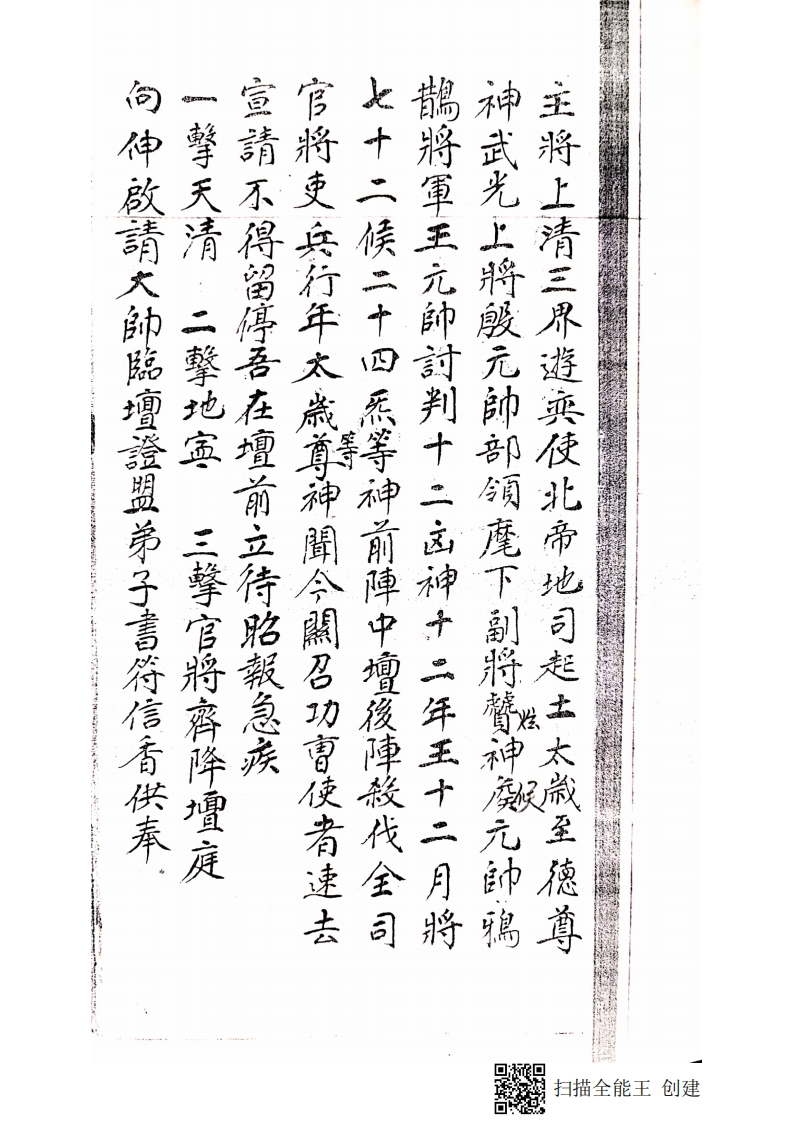 主將上清三界遊奕使北帝地司起土太歲至德尊
神武光上將殷元帥部領麾下副將贊神侯元帥鴉
鵲將軍王元帥討判十二凶神十二年王十二月將
七十二候二十四炁等神前陣中壇後陣殺伐全司
官將吏兵行年太歲尊神等聞今關召功曹使者速去
宣請不得留停吾在壇前立待昭報急疾
一擊天清 二擊地寧 三擊官將齊降壇庭
向伸啟請大帥臨壇證盟弟子書符信香供奉
扫描全能王 创建